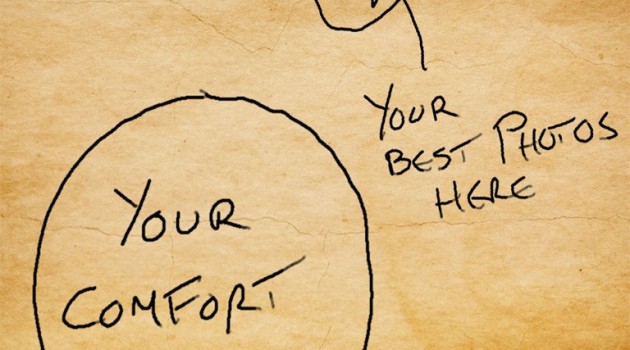 YOUR
BEST PHOTOS
HERE
YOUR
COMFORT